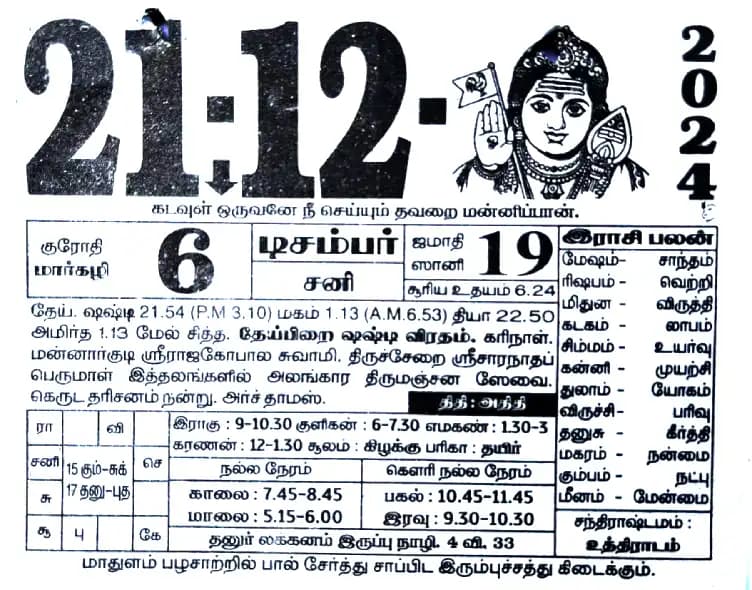 21.12.
2024
கடவுள் ஒருவனே நீ செய்யும் தவறை மன்னிப்பான்.
குரோதி
மார்கழி
6
டிசம்பர்
சனி
ஜமாதி
ஸானி
19
சூரிய உதயம் 6.24
தேய். ஷஷ்டி 21.54 (P.M 3.10) மகம் 1.13 (A.M.6.53) தியா 22.50
அமிர்த 1.13 மேல் சித்த. தேய்பிறை ஷஷ்டி விரதம். கரிநாள்.
மன்னார்குடி ஸ்ரீராஜகோபால சுவாமி, திருச்சேறை ஸ்ரீசாரநாதப்
பெருமாள் இத்தலங்களில் அலங்கார திருமஞ்சன ஸேவை.
கெருட தரிசனம் நன்று. அர்ச் தாமஸ்.
திதி : அதிதி
ரா
வி
சனி
செ
சு
சூ
பு
கே
15 கும்-சுக்
17 தனு-புத
இராகு : 9-10.30 குளிகன் : 6-7.30 எமகண் : 1.30-3
கரணன் : 12-1.30 சூலம் : கிழக்கு பரிகா : தயிர்
நல்ல நேரம்
கௌரி நல்ல நேரம்
காலை : 7.45-8.45
பகல் : 10.45-11.45
மாலை : 5.15-6.00
இரவு : 9.30-10.30
தனுர் லக்கனம் இருப்பு நாழி. 4 வி. 33
இராசி பலன்
மேஷம்- சாந்தம்
ரிஷபம்- வெற்றி
மிதுன - விருத்தி
கடகம் - லாபம்
சிம்மம் - உயர்வு
கன்னி - முயற்சி
துலாம் - யோகம்
விருச்சி- பரிவு
தனுசு - கீர்த்தி
மகரம் - நன்மை
கும்பம் - நட்பு
மீனம் - மேன்மை
சந்திராஷ்டமம் :
உத்திராடம்
மாதுளம் பழசாற்றில் பால் சேர்த்து சாப்பிட இரும்புச்சத்து கிடைக்கும்.